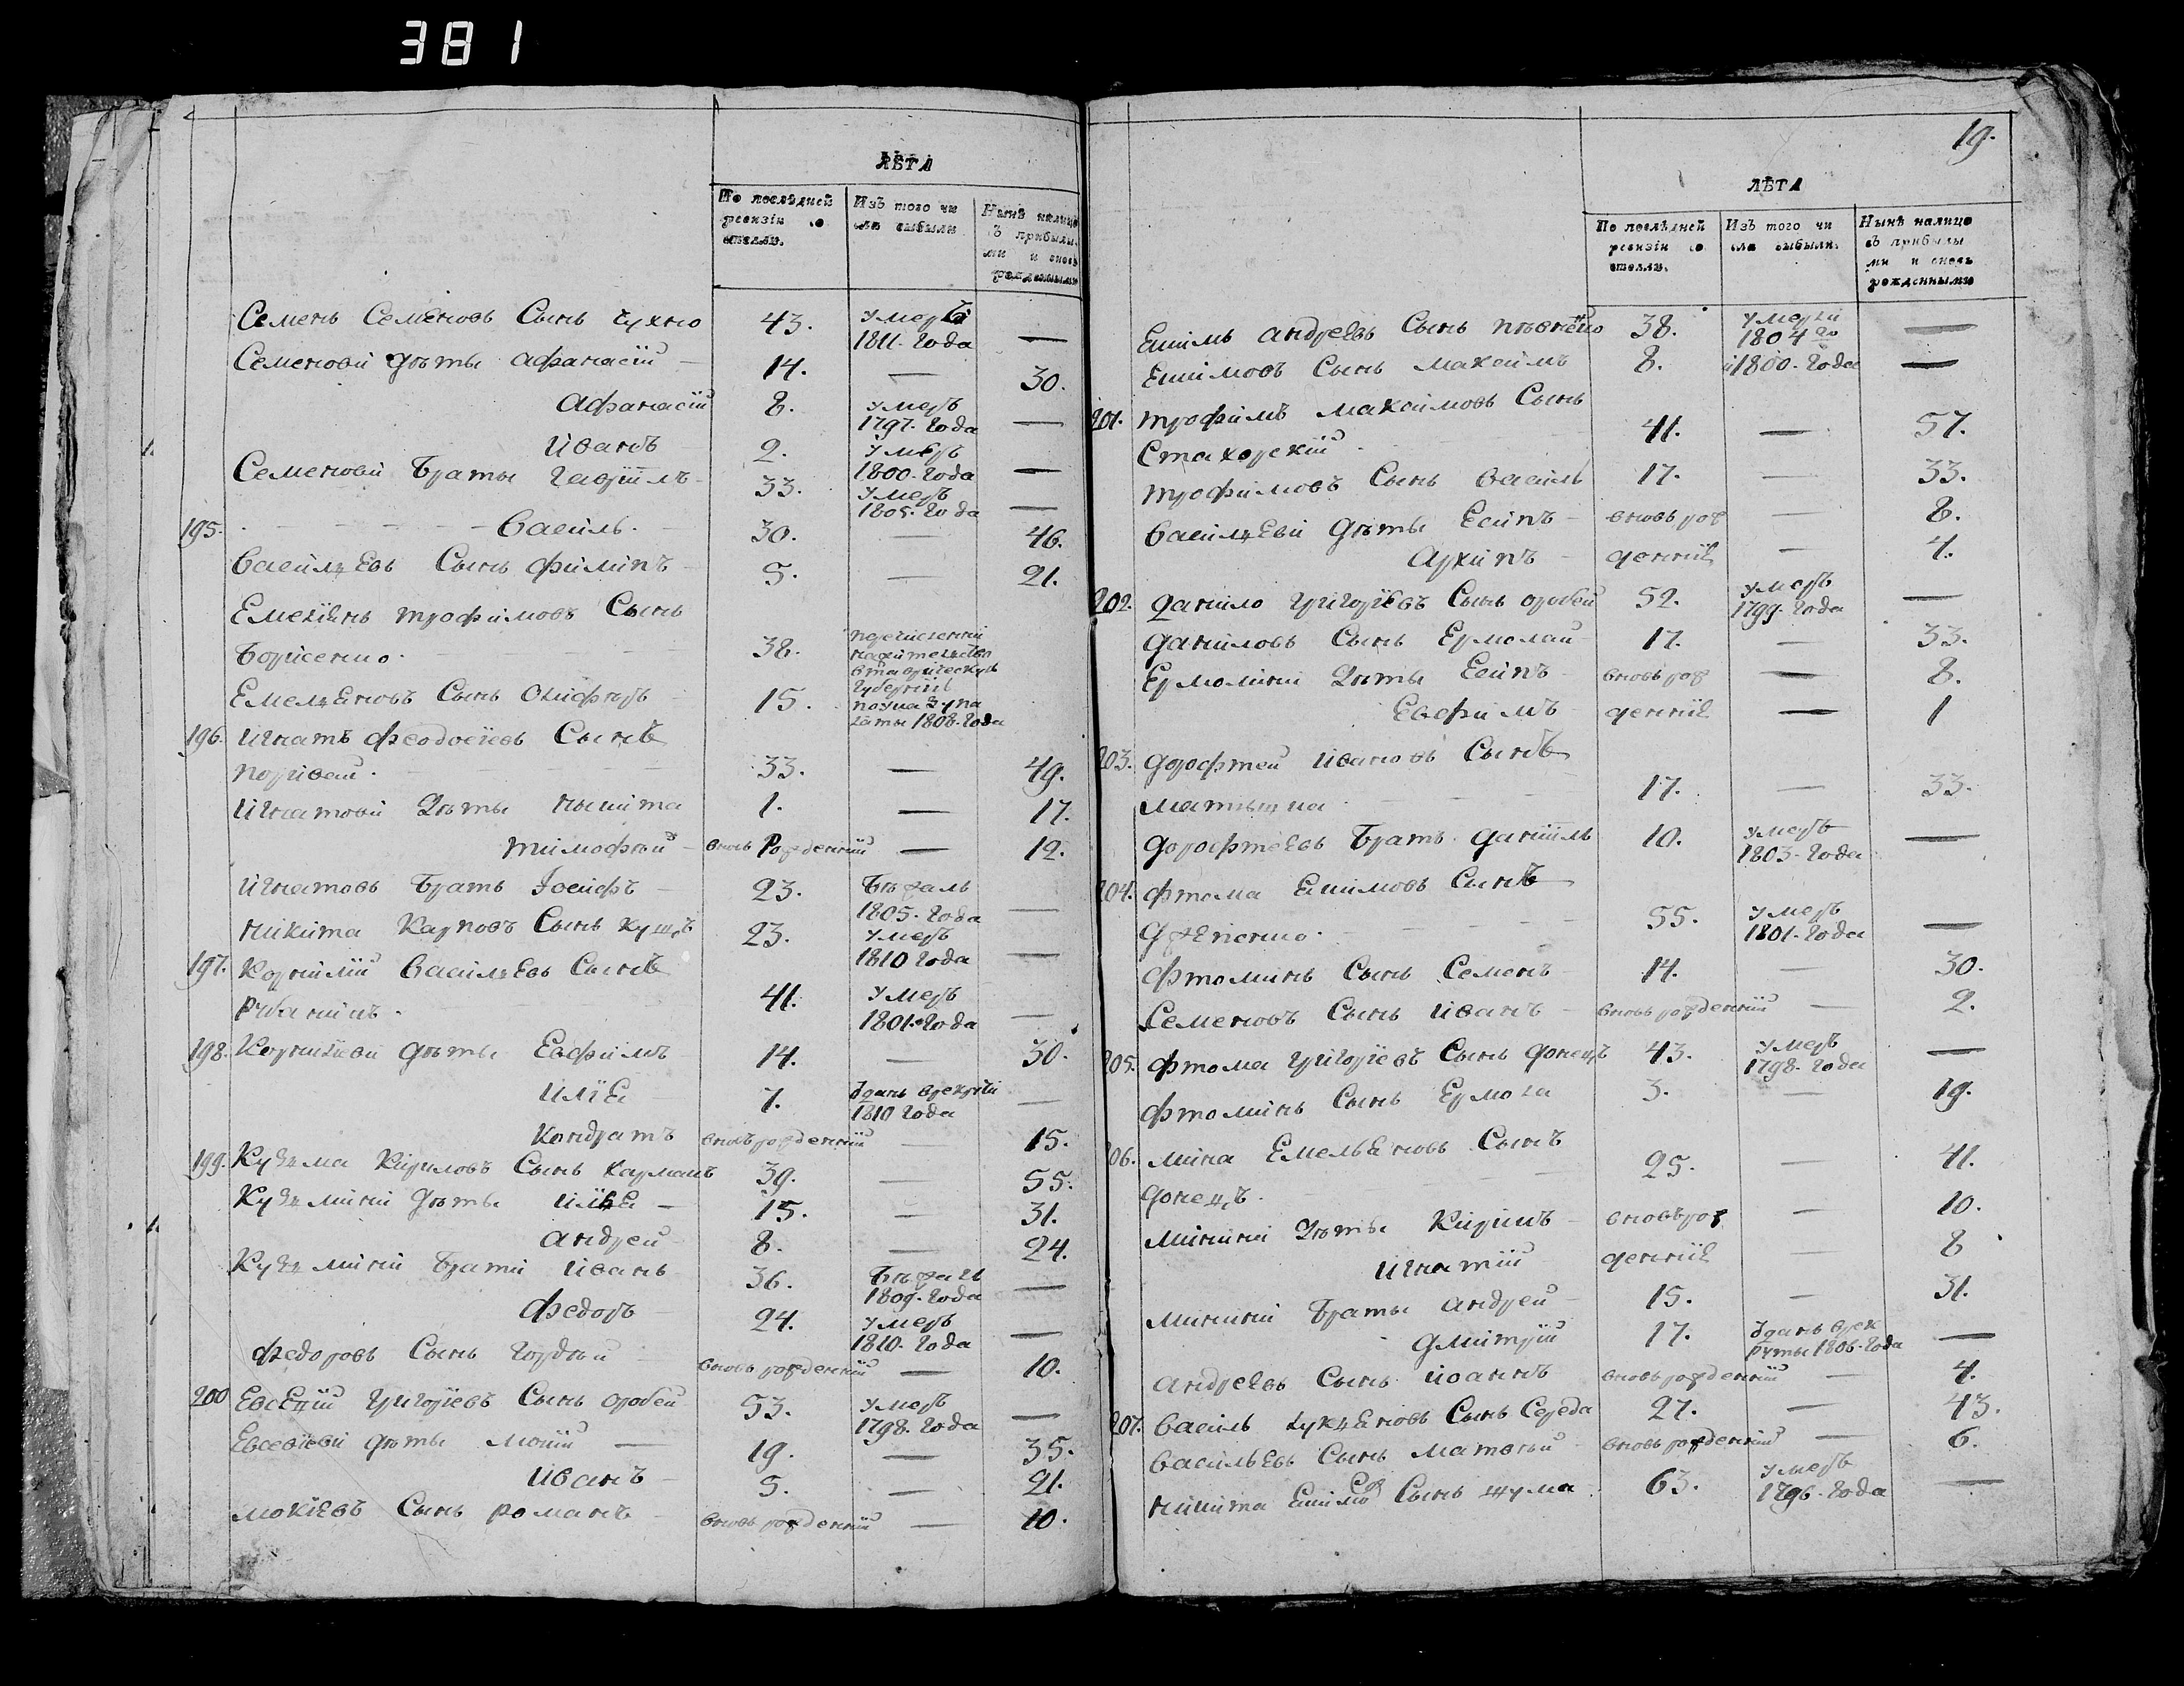 381
ЛѢТА
По послѣдней ревизіи состояло.
Изъ того числа выбыло
Нынѣ налицо съ прибылыми и вновь рожденными
Семенъ Семеновъ Сынъ 43. умеръ 1811. года —
Семеновы дѣты Афанасій 14. — 30.
Афанасій 8. умеръ 1797. года —
Иванъ 2. умеръ 1800. года —
Семеновы браты Гавріилъ 33. умеръ 1805. года —
195. Василь 30. — 46.
Васильевъ Сынъ Филипъ 5. — 21.
Емеліянъ Трофимовъ Сынъ
Борисенко 38.
Емельяновъ Сынъ 15. 1808. года
196. Игнатъ Феодосіевъ Сынъ
33. — 49.
Игнатовы дѣты Никита 1. — 17.
Тимофѣй вновь Рожденній — 12.
Игнатовъ братъ Іосифъ 23. бѣжалъ 1805. года —
Никита Карповъ Сынъ Куцъ 23. умеръ 1810 года —
197. Корнилій Васильевъ Сынъ
Рубанинъ 41. умеръ 1801. года —
198. Корниліеви дѣты Евфимъ 14. — 30.
Илія 7. зданъ врекруты 1810 года —
Кондратъ вновь рожденній — 15.
199. Кузьма Кириловъ Сынъ Карманъ 39. — 55.
Кузьмины дѣты Илія 15. — 31.
Андрей 8. — 24.
Кузьмины браты Иванъ 36. бѣжалъ 1809. года —
Федоръ 24. умеръ 1810. года —
Федоровъ Сынъ Гордѣй вновь рожденній — 10.
200 Евсевій Григоріевъ Сынъ Оробей 53. умеръ 1798. года —
Евсевіеви дѣты Мокій 19. — 35.
Иванъ 5. — 21.
Мокіевъ Сынъ Романъ вновь рожденній — 10.
19.
ЛѢТА
По послѣдней ревизіи состояло.
Изъ того числа выбыли.
Нынѣ налицо съ прибылыми и вновь рожденными
Екимъ Андреевъ Сынъ 38. умерли 1804го —
Екимовъ Сынъ Максимъ 8. и 1800. года —
201. Трофимъ Максимовъ Сынъ
Стахорскій 41. — 57.
Трофимовъ Сынъ Василь 17. — 33.
Васильеви дѣты Есипъ вновь рож — 8.
Архипъ денніе — 4.
202. Данило Григоріевъ Сынъ Оробей 52. умеръ 1799. года —
Даниловъ Сынъ Ермолай 17. — 33.
Ермолины дѣты Есипъ вновь рож — 8.
Евфимъ денніе — 1
203. Дорофтей Ивановъ Сынъ
17. — 33.
Дорофтеевъ братъ Даніилъ 10. умеръ 1803. года —
204. Фтома Екимовъ Сынъ
55. умеръ 1801. года —
Фтоминъ Сынъ Семенъ 14. — 30.
Семеновъ Сынъ Иванъ вновь рожденній — 2.
205. Фтома Григоріевъ Сынъ Донецъ 43. умеръ 1798. года —
Фтоминъ Сынъ Ермола 3. — 19.
206. Мина Емельяновъ Сынъ
Донецъ. 25. — 41.
Минины дѣты Кирилъ вновь рож — 10.
Игнатій денніе — 8
Минины браты Андрей 15. — 31.
Дмитрій 17. зданъ врекруты 1806. года —
Андреевъ Сынъ Иоаннъ вновь рожденній — 4.
207. Василь Лукьяновъ Сынъ Середа 27. — 43.
Васильевъ Сынъ Матвѣй вновь рожденній — 6.
Никита Екимовъ Сынъ Шума 63. умеръ 1796. года —